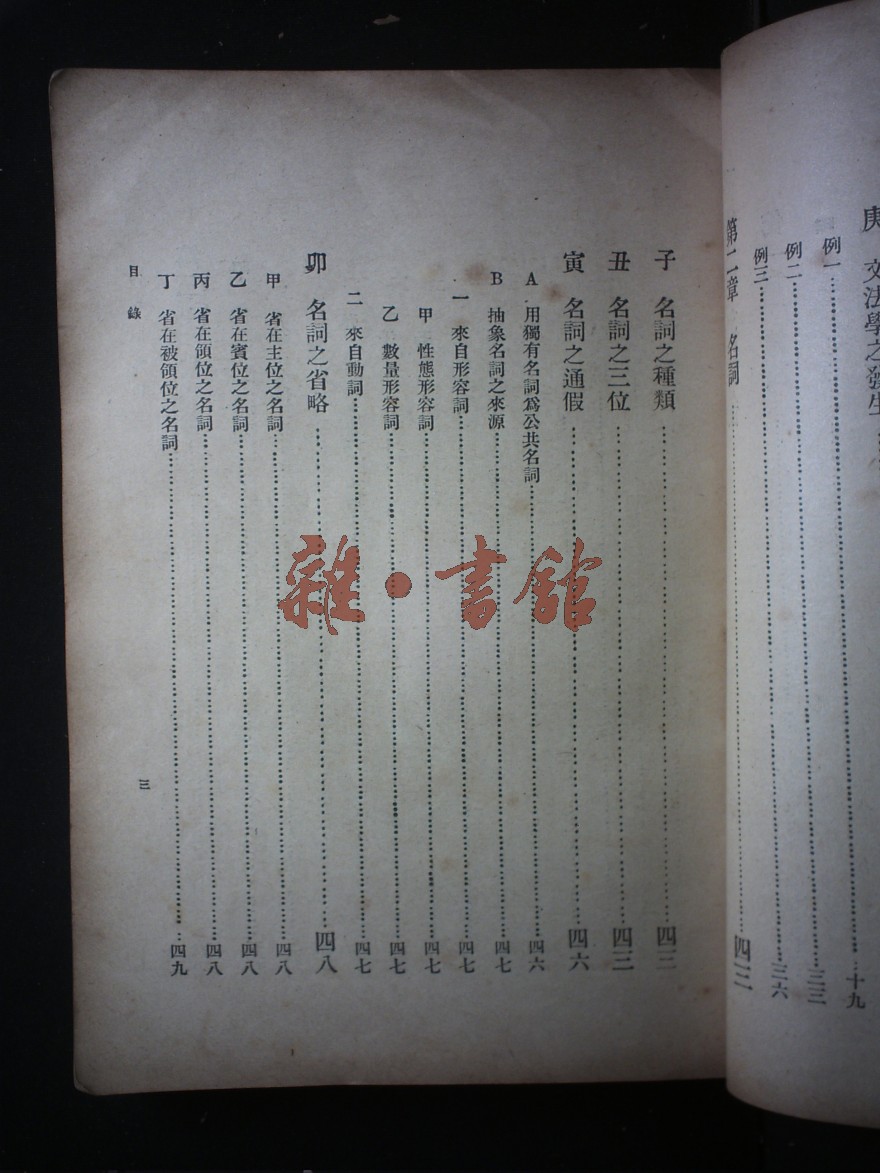 庚 文法學之發生……
例一……十九
例二……三三
例三……三六
第二章 名詞……四三
子 名詞之種類……四三
丑 名詞之三位……四三
寅 名詞之通假……四六
A 用獨有名詞爲公共名詞……四六
B 抽象名詞之來源……四七
一 來自形容詞……四七
甲 性態形容詞……四七
乙 數量形容詞……四七
二 來自動詞……四七
卯 名詞之省略……四八
甲 省在主位之名詞……四八
乙 省在賓位之名詞……四八
丙 省在領位之名詞……四八
丁 省在被領位之名詞……四九
目錄 三
雜·書館